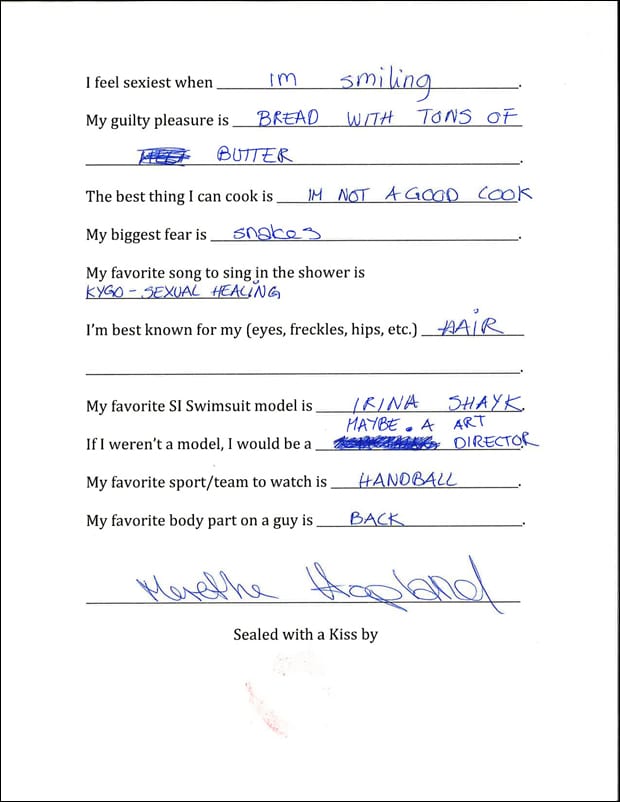 I feel sexiest when im smiling.
My guilty pleasure is BREAD WITH TONS OF
BUTTER.
The best thing I can cook is IM NOT A GOOD COOK
My biggest fear is snakes.
My favorite song to sing in the shower is
KYGO - SEXUAL HEALING
I'm best known for my (eyes, freckles, hips, etc.) HAIR
.
My favorite SI Swimsuit model is IRINA SHAYK.
MAYBE A ART
If I weren't a model, I would be a DIRECTOR.
My favorite sport/team to watch is HANDBALL.
My favorite body part on a guy is BACK.
Merethe Hopland
Sealed with a Kiss by